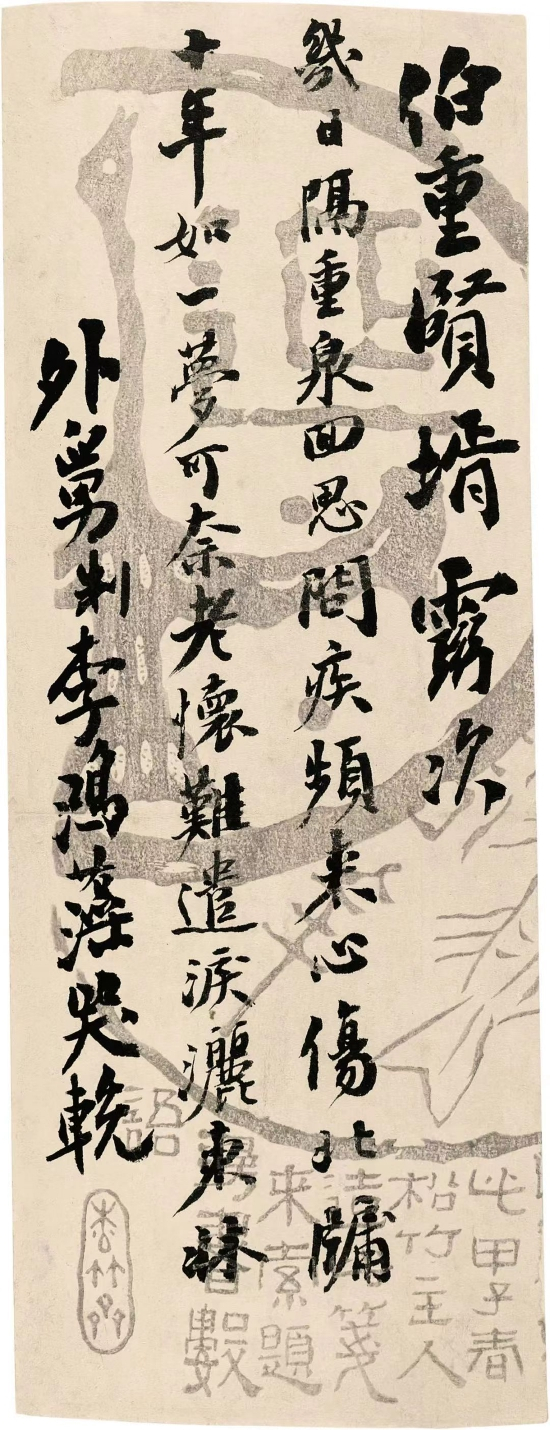 伯重賢壻霛次
幾日隔重泉回思問疾頻来心傷北牖
十年如一夢可奈老懷難遣淚灑東牀
外舅制李鴻藻哭輓
此甲子春
松竹主人
箋
来索題
數
詔